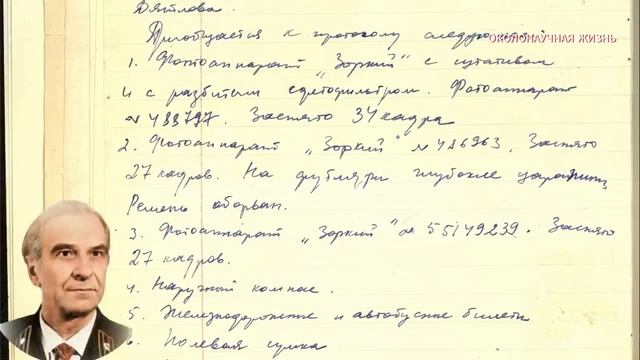 Дятлова.
ОКОЛОНАУЧНАЯ ЖИЗНЬ
Приобщается к протоколу следующее
1. Фотоаппарат „Зоркий" с штативом
и с разбитым светофильтром. Фотоаппарат
№ 488797. Заснято 34 кадра
2. Фотоаппарат „Зоркий" № 486963. Заснято
27 кадров. На футляре глубокие царапины
Ремень оборван.
3. Фотоаппарат „Зоркий" № 55149239. Заснято
27 кадров.
4. Наручный компас.
5. Железнодорожные и автобусные билеты
6. Полевая сумка